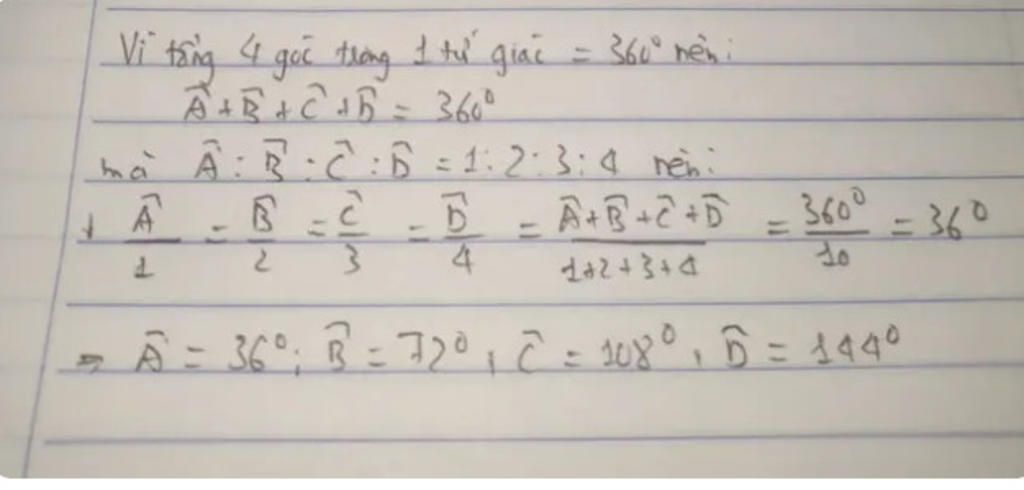 Vì tổng 4 góc trong 1 tứ giác = 360° nên:
Â + B̂ + Ĉ + D̂ = 360°
mà Â : B̂ : Ĉ : D̂ = 1 : 2 : 3 : 4 nên:
+ Â/1 = B̂/2 = Ĉ/3 = D̂/4 = (Â + B̂ + Ĉ + D̂)/(1+2+3+4) = 360°/10 = 36°
⇒ Â = 36°; B̂ = 72°, Ĉ = 108°, D̂ = 144°